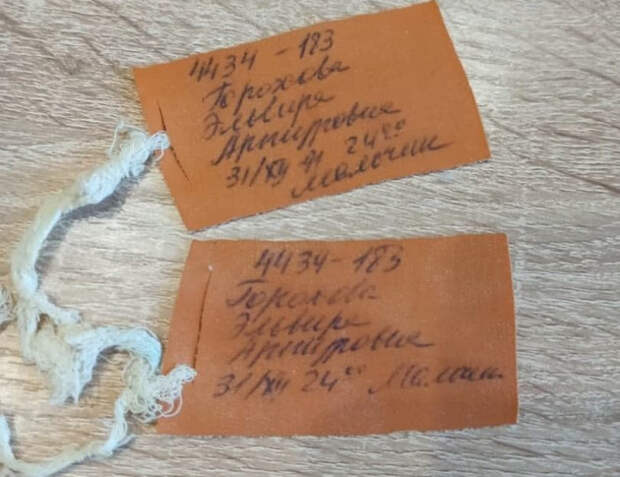 4434-183
Горохова
Эльвира
Артуровна
31/XII 91 24⁰⁰
Мальчик
4434-183
Горохова
Эльвира
Артуровна
31/XII 24⁰⁰ Мальчик